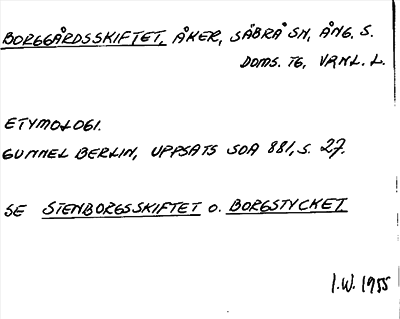 BORGGÅRDSSKIFTET, ÅKER, SÄBRÅ SN, ÅNG. S.
DOMS. TG, VRML. L.
ETYMOLOGI.
GUNNEL BERLIN, UPPSATS SOA 881, S. 27.
SE STENBORGSSKIFTET O. BORGSTYCKET
I.W. 1955